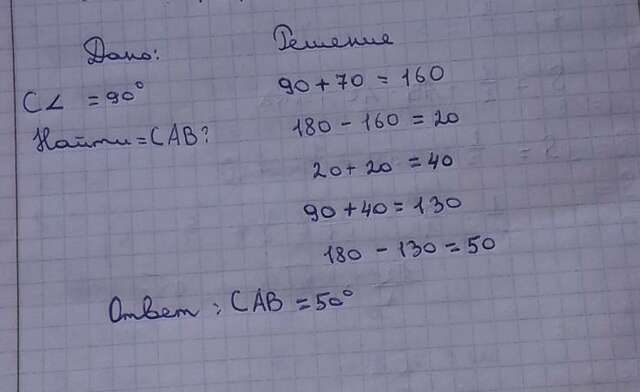 Дано:
Решение
C∠ = 90°
90 + 70 = 160
Найти = CAB?
180 - 160 = 20
20 + 20 = 40
90 + 40 = 130
180 - 130 = 50
Ответ: CAB = 50°